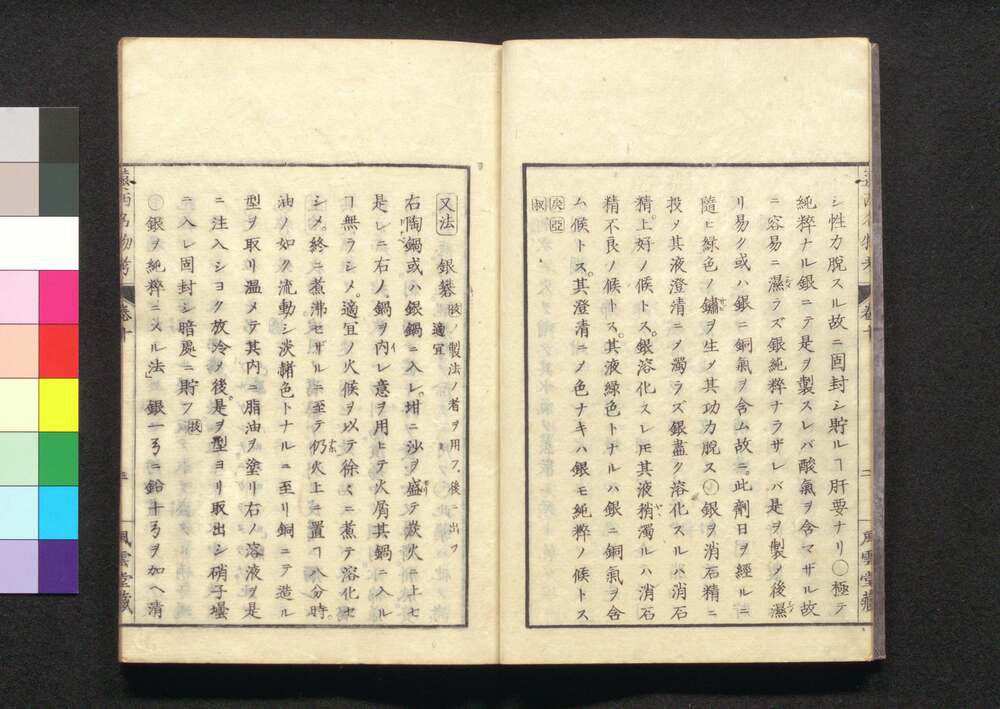 シ性力脱スル故ニ固封シ貯ルヿ肝要ナリ○極テ
純粹ナル銀ニテ是ヲ製スレバ酸氣ヲ含マザル故
ニ容易ニ濕ラズ銀純粹ナラザレバ是ヲ製メ後濕
リ易ク或ハ銀ニ銅氣ヲ含ム故ニ。此劑日ヲ經ルニ
隨ヒ綠色ノ鏽ヲ生メ其功力脫ス○銀ヲ消石精ニ
投メ其液澄清ニメ濁ラズ銀盡ク溶化スルハ消石
精。上好ノ候トス。銀溶化スレ𪜈其液稍濁ルハ消石
精不良ノ候トス。其液綠色トナルハ銀ニ銅氣ヲ含
ム候トス。其澄清ニメ色ナキハ銀モ純粹ノ候トス
又法 銀礬 㕮ノ製法ノ者ヲ用フ。後ニ出ヅ 適宜
右陶鍋或ハ銀鍋ニ入レ。坩ニ沙ヲ盛テ㷔火ニ上セ
是レニ右ノ鍋ヲ內レ意ヲ用ヒテ火屑其鍋ニ入ル
ヿ無ラシメ。適宜ノ火候ヲ以テ徐々ニ煮テ溶化セ
シメ。終ニ煮沸セザルニ至テ仍火上ニ置ヿ八分時。
油ノ如ク流動シ淡赭色トナルニ至リ銅ニテ造ル
型ヲ取リ溫メテ其內ニ脂油ヲ塗リ右ノ溶液ヲ是
ニ注入シヨク放冷メ後。是ヲ型ヨリ取出シ硝子壜
ニ入レ固封シ暗屍ニ貯フ
○銀ヲ純粹ニスル法」銀一ニ鉛十ヲ加ヘ清
遠西名物考 卷十
風雲堂藏
風雲堂藏